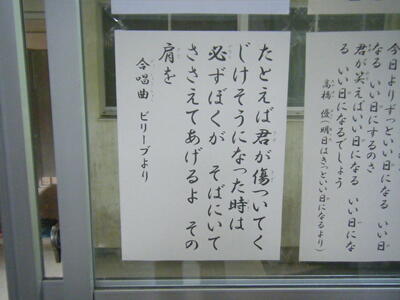 今日よりずっといい日になる いい日に
なる いい日にするのさ
君が笑えばいい日になる いい日にな
る いい日になるでしょう
高橋 優(明日はきっといい日になるより)
たとえば君が傷ついてく
じけそうになった時は
必ずぼくが そばにいて
ささえてあげるよ その
肩を
合唱曲 ビリーブより